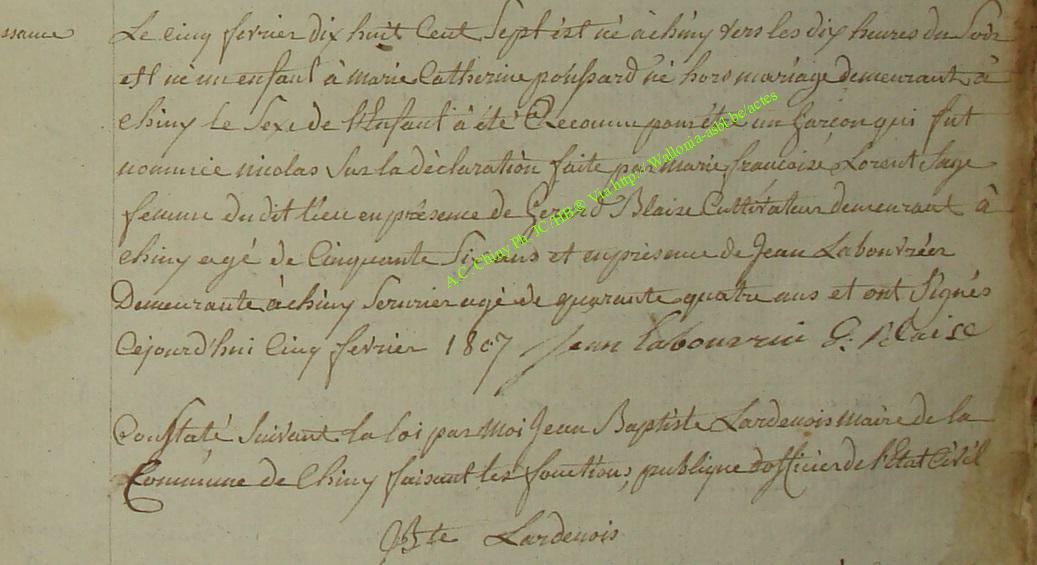 ssance
Le cinq fevrier dix huit Cent Sept est né a chiny vers les dix heures du Soir
est né un enfant à marie Catherine poussard né hors mariage demeurant à
chiny le Sexe de l'Enfant à été Reconnu pour étre un Garcon qui fut
nommée nicolas Sur la déclaration faite par marie francaise Lorent Sage
femme du dit lieu en présense de Gerard Blaise Cultivateur demeurant à
chiny agé de Cinquante Six ans et en présense de Jean Labouvrée
Demeurante à chiny Serurier agé de quarante quatre ans et ont Signés
Cejourd'hui Cinq fevrier 1807 Jean G: Blaise
Constaté Suivant la loi par Moi Jean Baptiste Lardenois maire de la
Commune de Chiny faisant les fonctions publique d'officier de l'Etat Civil
JBte Lardenois
A.C. Chiny Ph. JC /HB © Via http://Wallonia-asbl.be/actes